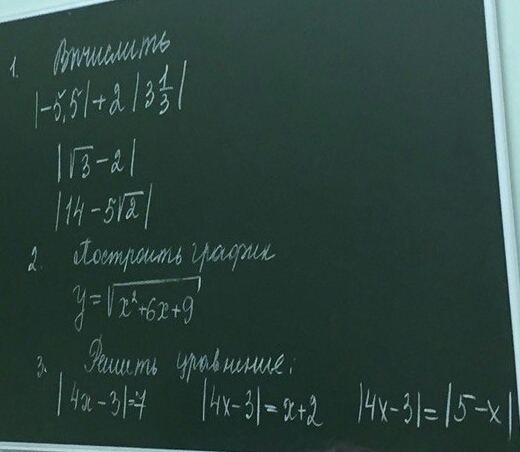 1. Вычислить
|-5,5| + 2 |3 1/3|
|√3 - 2|
|14 - 5√2|
2. Построить график
y = √(x² + 6x + 9)
3. Решить уравнение:
|4x - 3| = 7 |4x - 3| = x + 2 |4x - 3| = |5 - x|